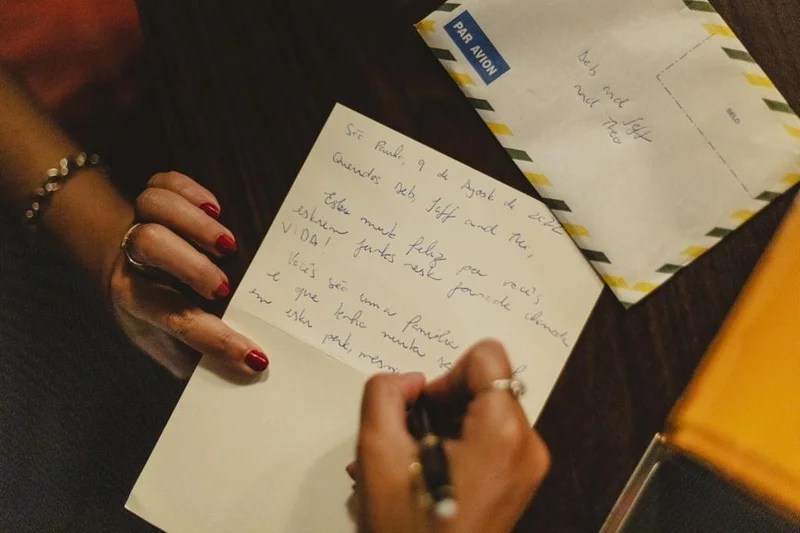 São Paulo, 9 de Agosto de 2022
Queridos Deb, Jeff and Theo,
Estou muito feliz por vocês
estarem juntos nesta jornada chamada
VIDA!
Vocês são uma família
e que tenho muita
em estar perto, mesmo
PAR AVION
Deb and Jeff
and Theo
SELO